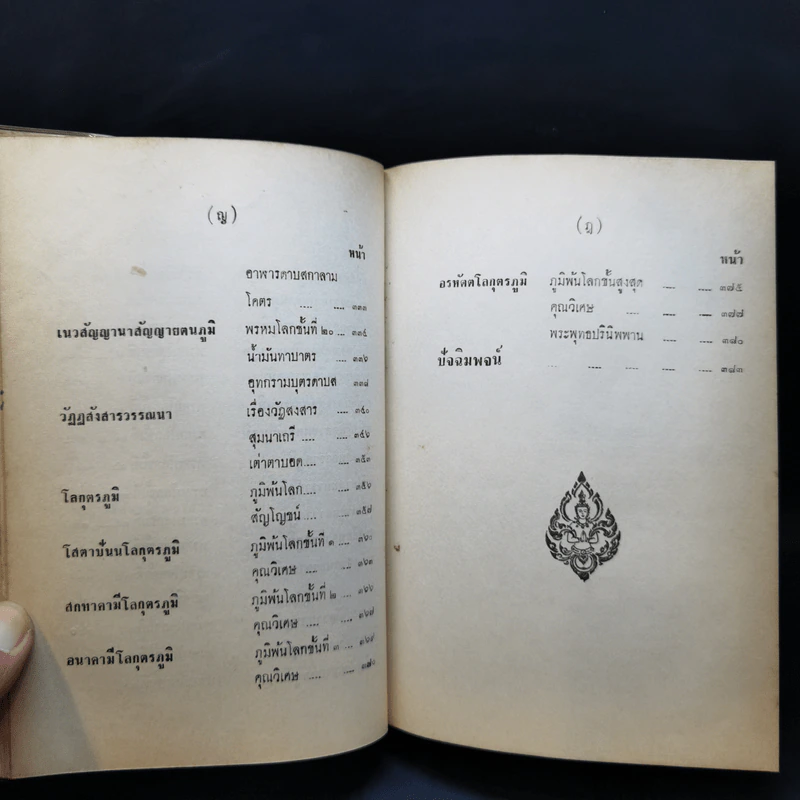 (ญ)
หน้า
อาฬารดาบสกาลาม
โคตร .... .... ๓๓๓
เนวสัญญานาสัญญายตนภูมิ พรหมโลกชั้นที่ ๒๐ .... ๓๓๔
น้ำมันทาบาตร .... ๓๓๖
อุทกรามบุตรดาบส ๓๓๘
วัฏฏสังสารวรรณนา เรื่องวัฏสงสาร .... ๓๔๐
สุมนาเถรี .... .... ๓๔๖
เต่าตาบอด.... .... ๓๕๓
โลกุตรภูมิ ภูมิพ้นโลก.... .... ๓๕๖
สัญโญชน์ .... .... ๓๕๗
โสดาปันนโลกุตรภูมิ ภูมิพ้นโลกชั้นที่ ๑ .... ๓๖๐
คุณวิเศษ .... .... ๓๖๓
สกทาคามีโลกุตรภูมิ ภูมิพ้นโลกชั้นที่ ๒ .... ๓๖๖
คุณวิเศษ .... .... ๓๖๗
อนาคามีโลกุตรภูมิ ภูมิพ้นโลกชั้นที่ ๓ .... ๓๖๙
คุณวิเศษ .... .... ๓๗๐
(ฎ)
หน้า
อรหัตตโลกุตรภูมิ ภูมิพ้นโลกชั้นสูงสุด .... .... ๓๗๕
คุณวิเศษ .... .... .... ๓๗๗
พระพุทธปรินิพพาน .... .... ๓๘๐
ปัจฉิมพจน์ .... .... .... .... .... ๓๘๓